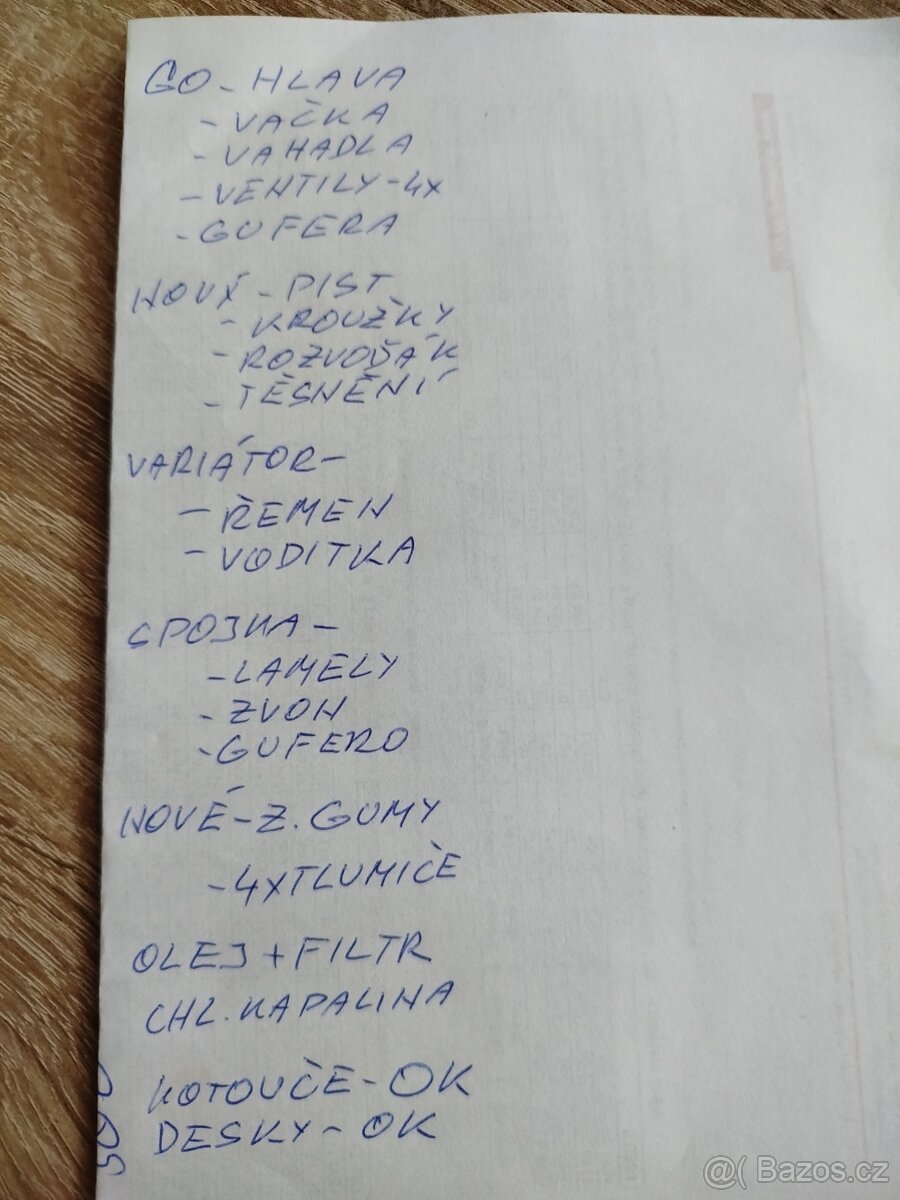 GO - HLAVA
- VAČKA
- VAHADLA
- VENTILY - 4x
- GUFERA
NOVÝ - PIST
- KROUŽKY
- ROZVOĎÁK
- TĚSNĚNÍ
VARIÁTOR -
- ŘEMEN
- VODITKA
SPOJKA -
- LAMELY
- ZVON
- GUFERO
NOVÉ - Z. GUMY
- 4xTLUMIČE
OLEJ + FILTR
CHL. KAPALINA
KOTOUČE - OK
DESKY - OK
@( Bazos.cz